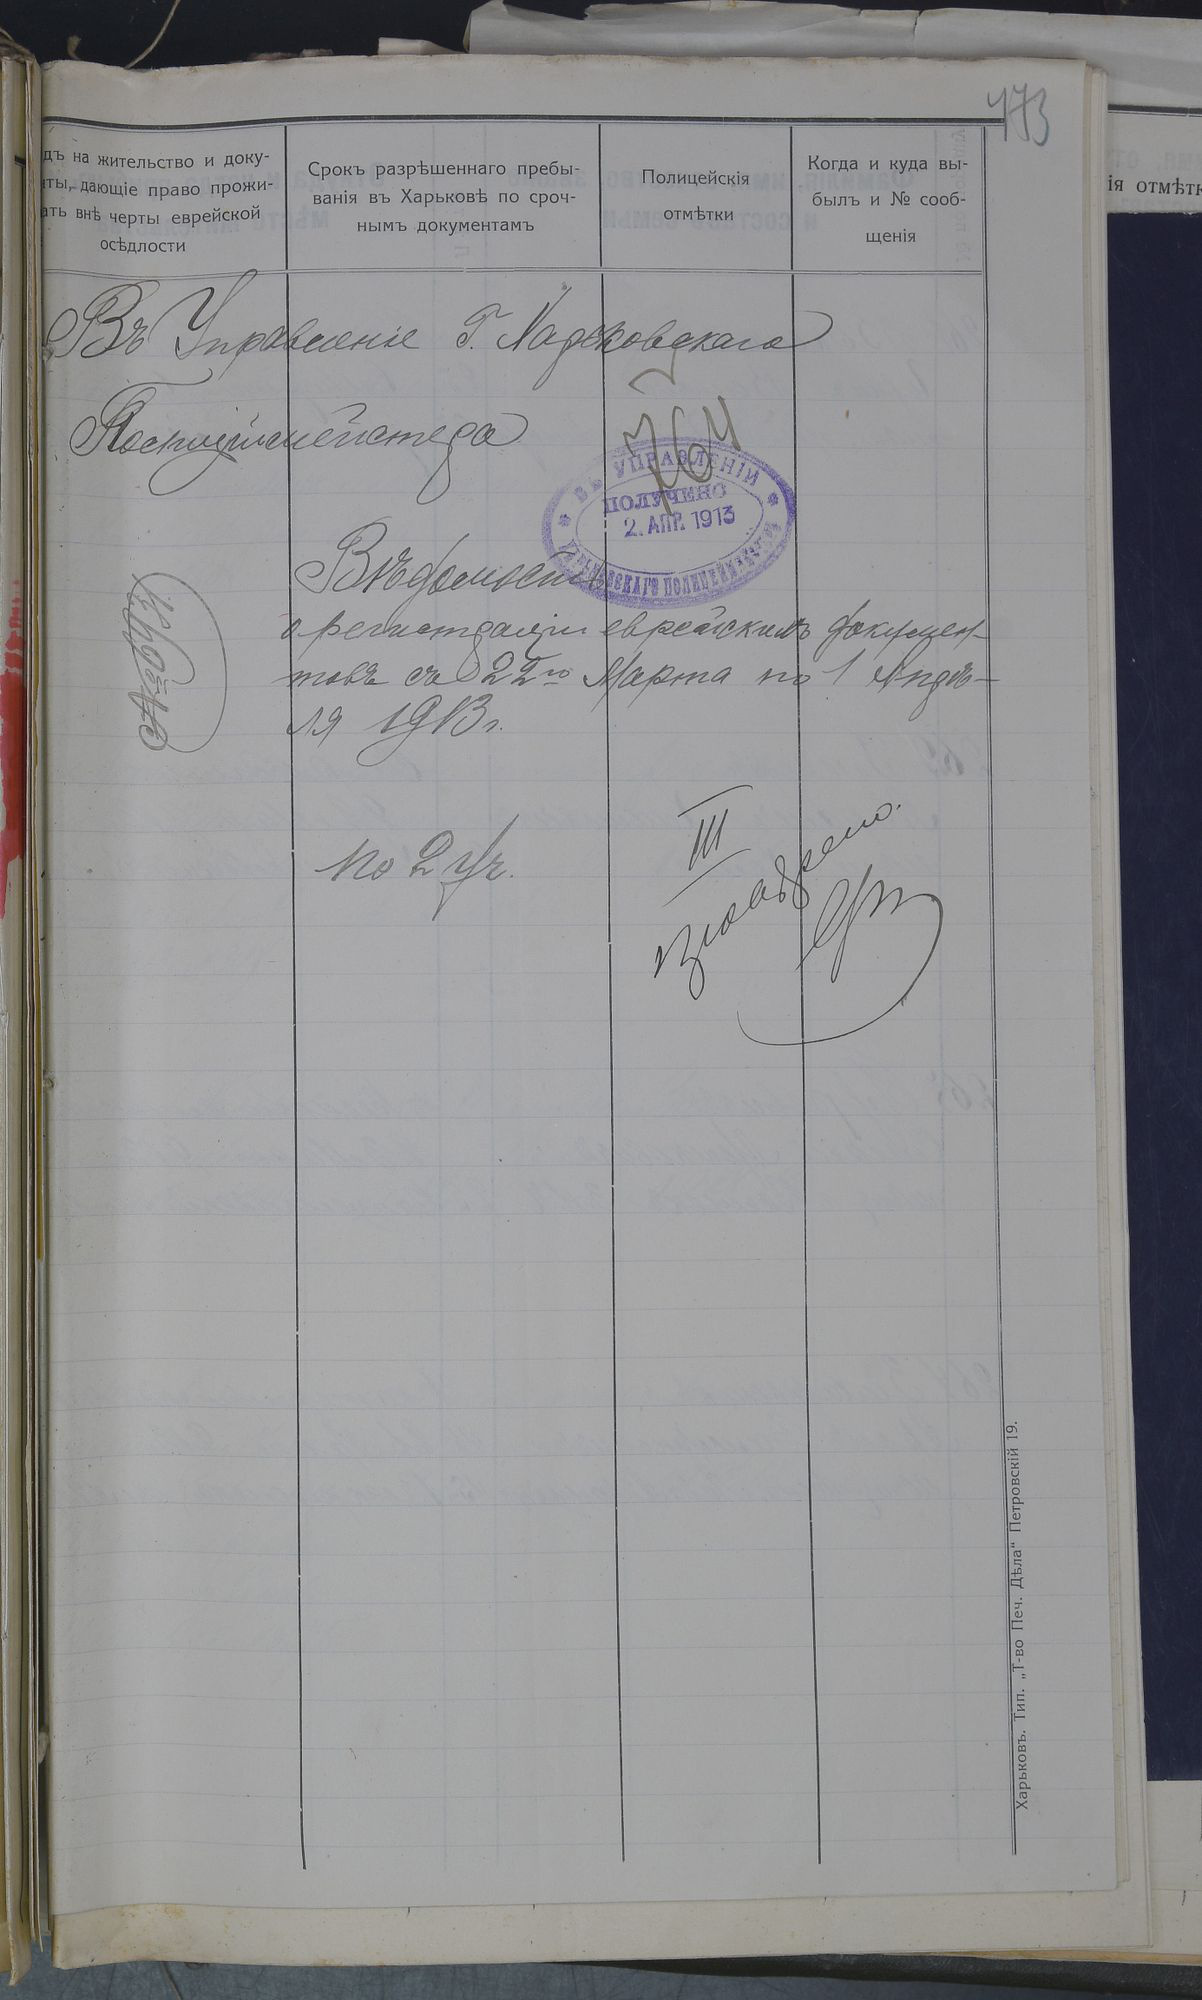 173
дъ на жительство и доку-
нты, дающіе право прожи-
ать внѣ черты еврейской
осѣдлости
Срокъ разрѣшеннаго пребы-
ванія въ Харьковѣ по сроч-
нымъ документамъ
Полицейскія
отмѣтки
Когда и куда вы-
былъ и № сооб-
щенія
ія отмѣтк
Въ Управленіе Г. Харьковскаго
Полицiймейстера
764
ВЪ УПРАВЛЕНІИ
ПОЛУЧЕНО
2. АПР. 1913
ХАРЬКОВСКАГО ПОЛИЦЕЙМЕЙСТЕРА
Вѣдомость
о регистраціи еврейскихъ докумен-
товъ съ 22го Марта по 1 Апрѣ-
ля 1913 г.
По 2 уч.
III
Харьковъ. Тип. „Т-во Печ. Дѣла“ Петровскій 19.